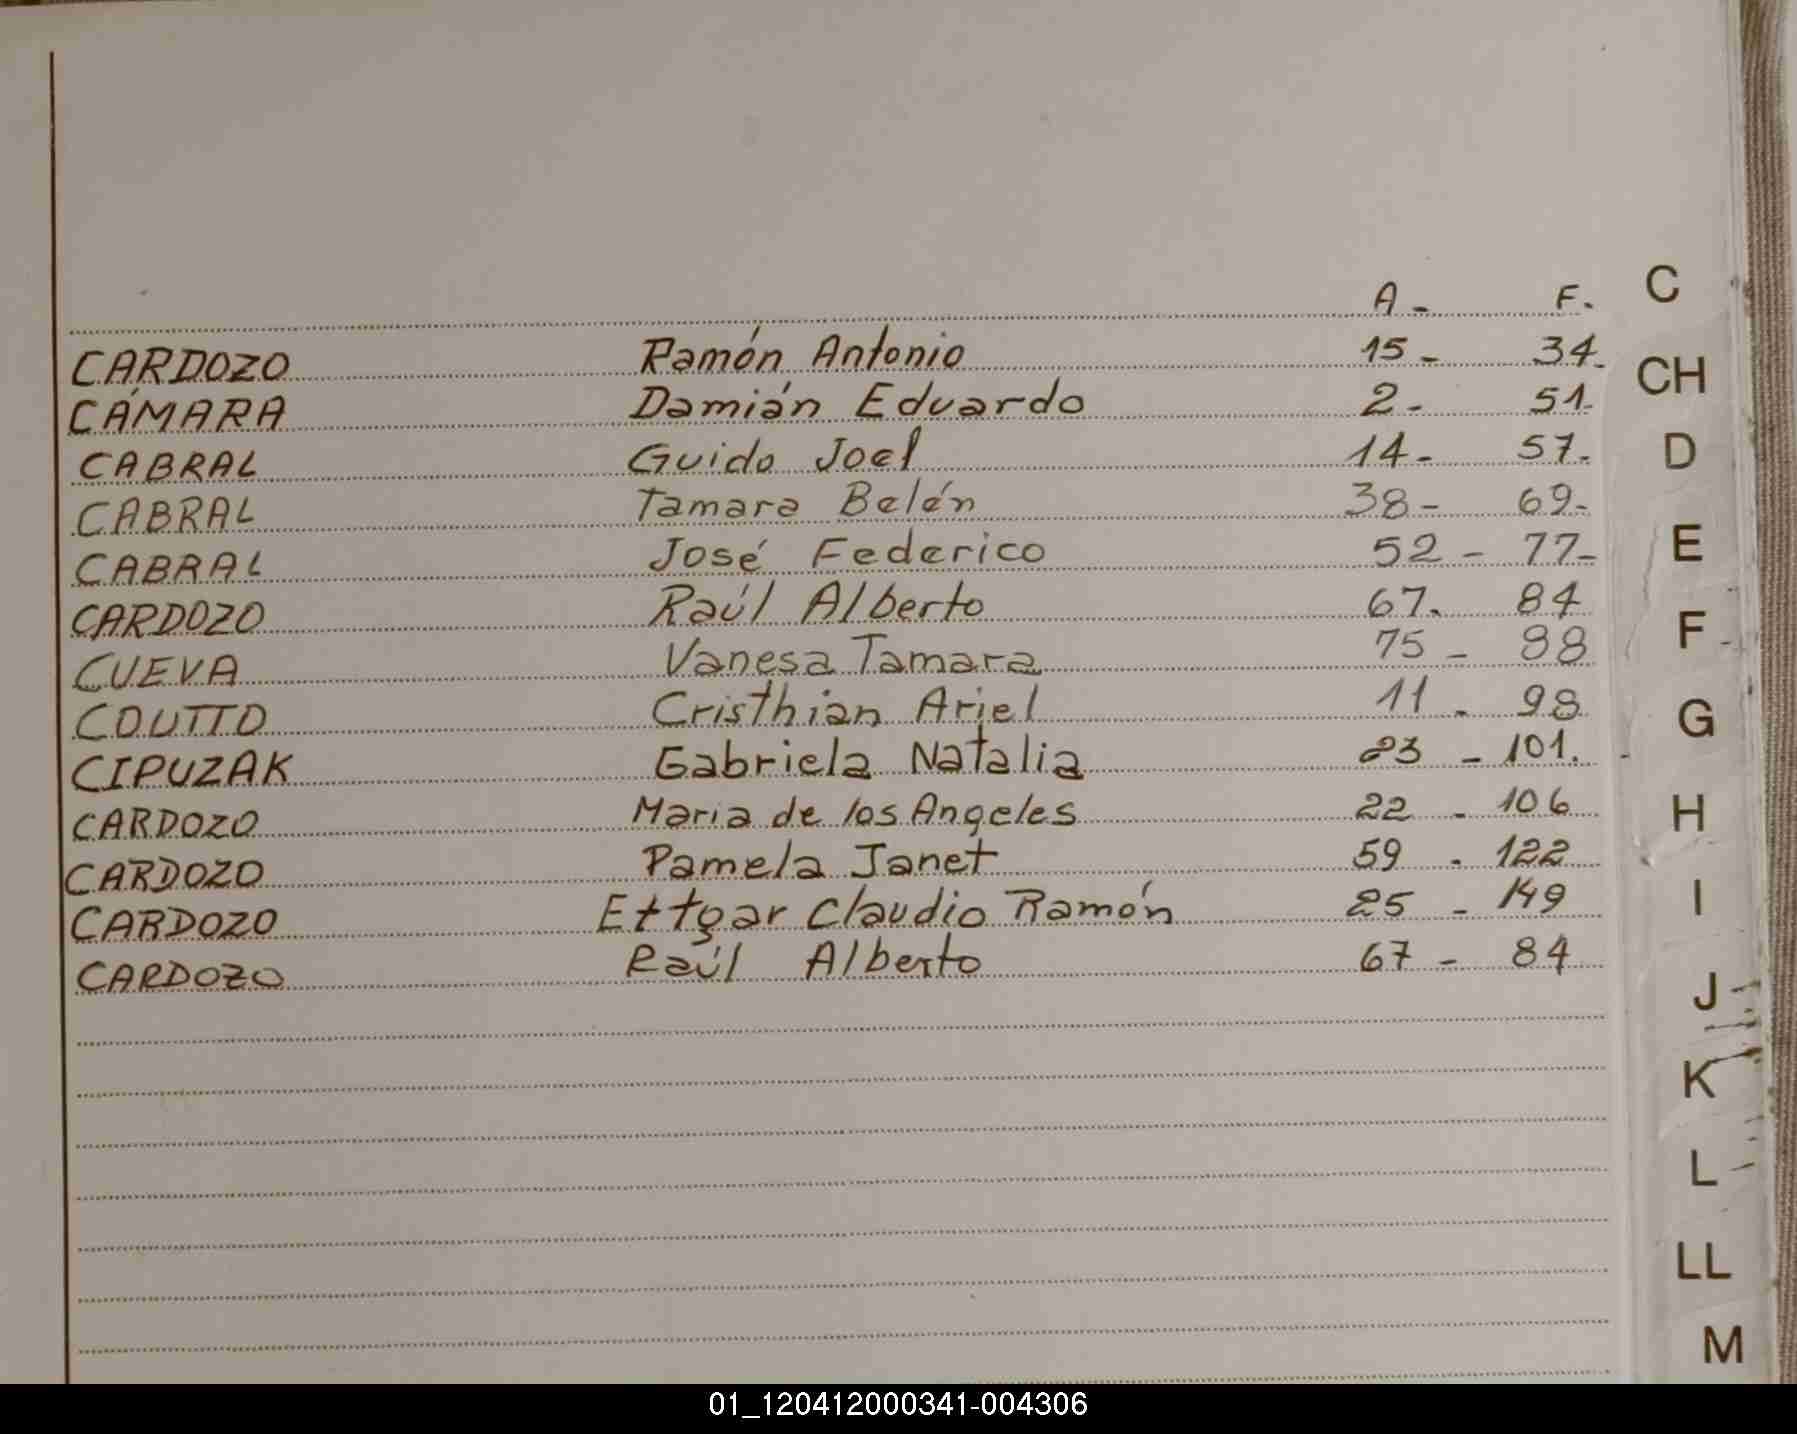 A - F.
CARDOZO Ramón Antonio 15 - 34.
CÁMARA Damián Eduardo 2 - 51.
CABRAL Guido Joel 14 - 57.
CABRAL Tamara Belén 38 - 69.
CABRAL José Federico 52 - 77-
CARDOZO Raúl Alberto 67. 84
CUEVA Vanesa Tamara 75 - 88
COUTTO Cristhian Ariel 11 - 98
CIPUZAK Gabriela Natalia 23 - 101.
CARDOZO Maria de los Angeles 22 - 106
CARDOZO Pamela Janet 59 - 122
CARDOZO Ettgar Claudio Ramón 25 - 149
CARDOZO Raúl Alberto 67 - 84
C
CH
D
E
F
G
H
I
J
K
L
LL
M
01_120412000341-004306